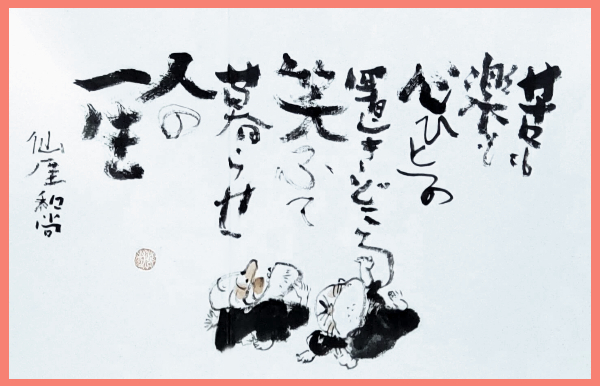 苦も
楽も
心ひとつの
置きどころ
笑ふて
暮らせ
人の
一生
仙厓和尚